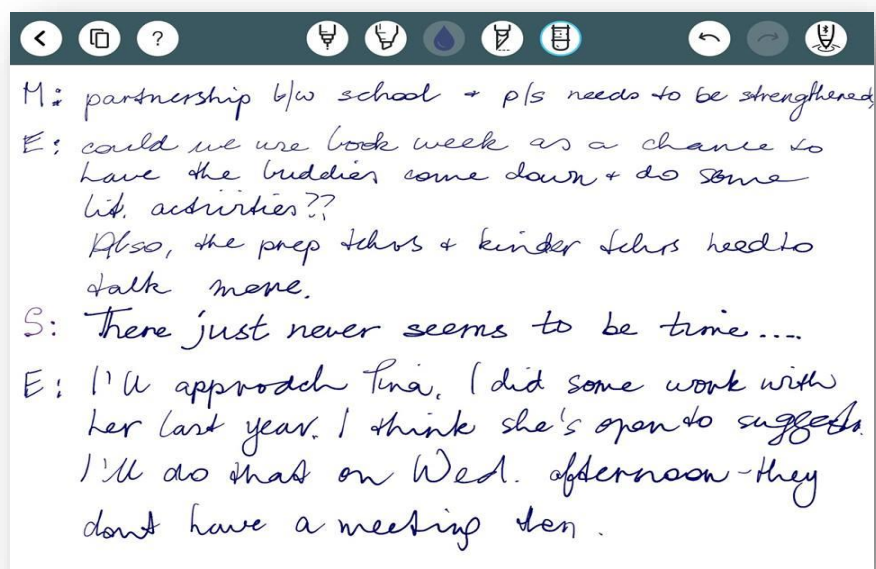 ?
M: partnership b/w school + p/s needs to be strengthened,
E: could we use book week as a chance to
have the buddies come down + do some
lit. activities??
Also, the prep tchrs + kinder tchrs need to
talk more.
S: There just never seems to be time....
E: I'll approach Tina. I did some work with
her last year. I think she's open to suggests.
I'll do that on Wed. afternoon - they
dont have a meeting then.